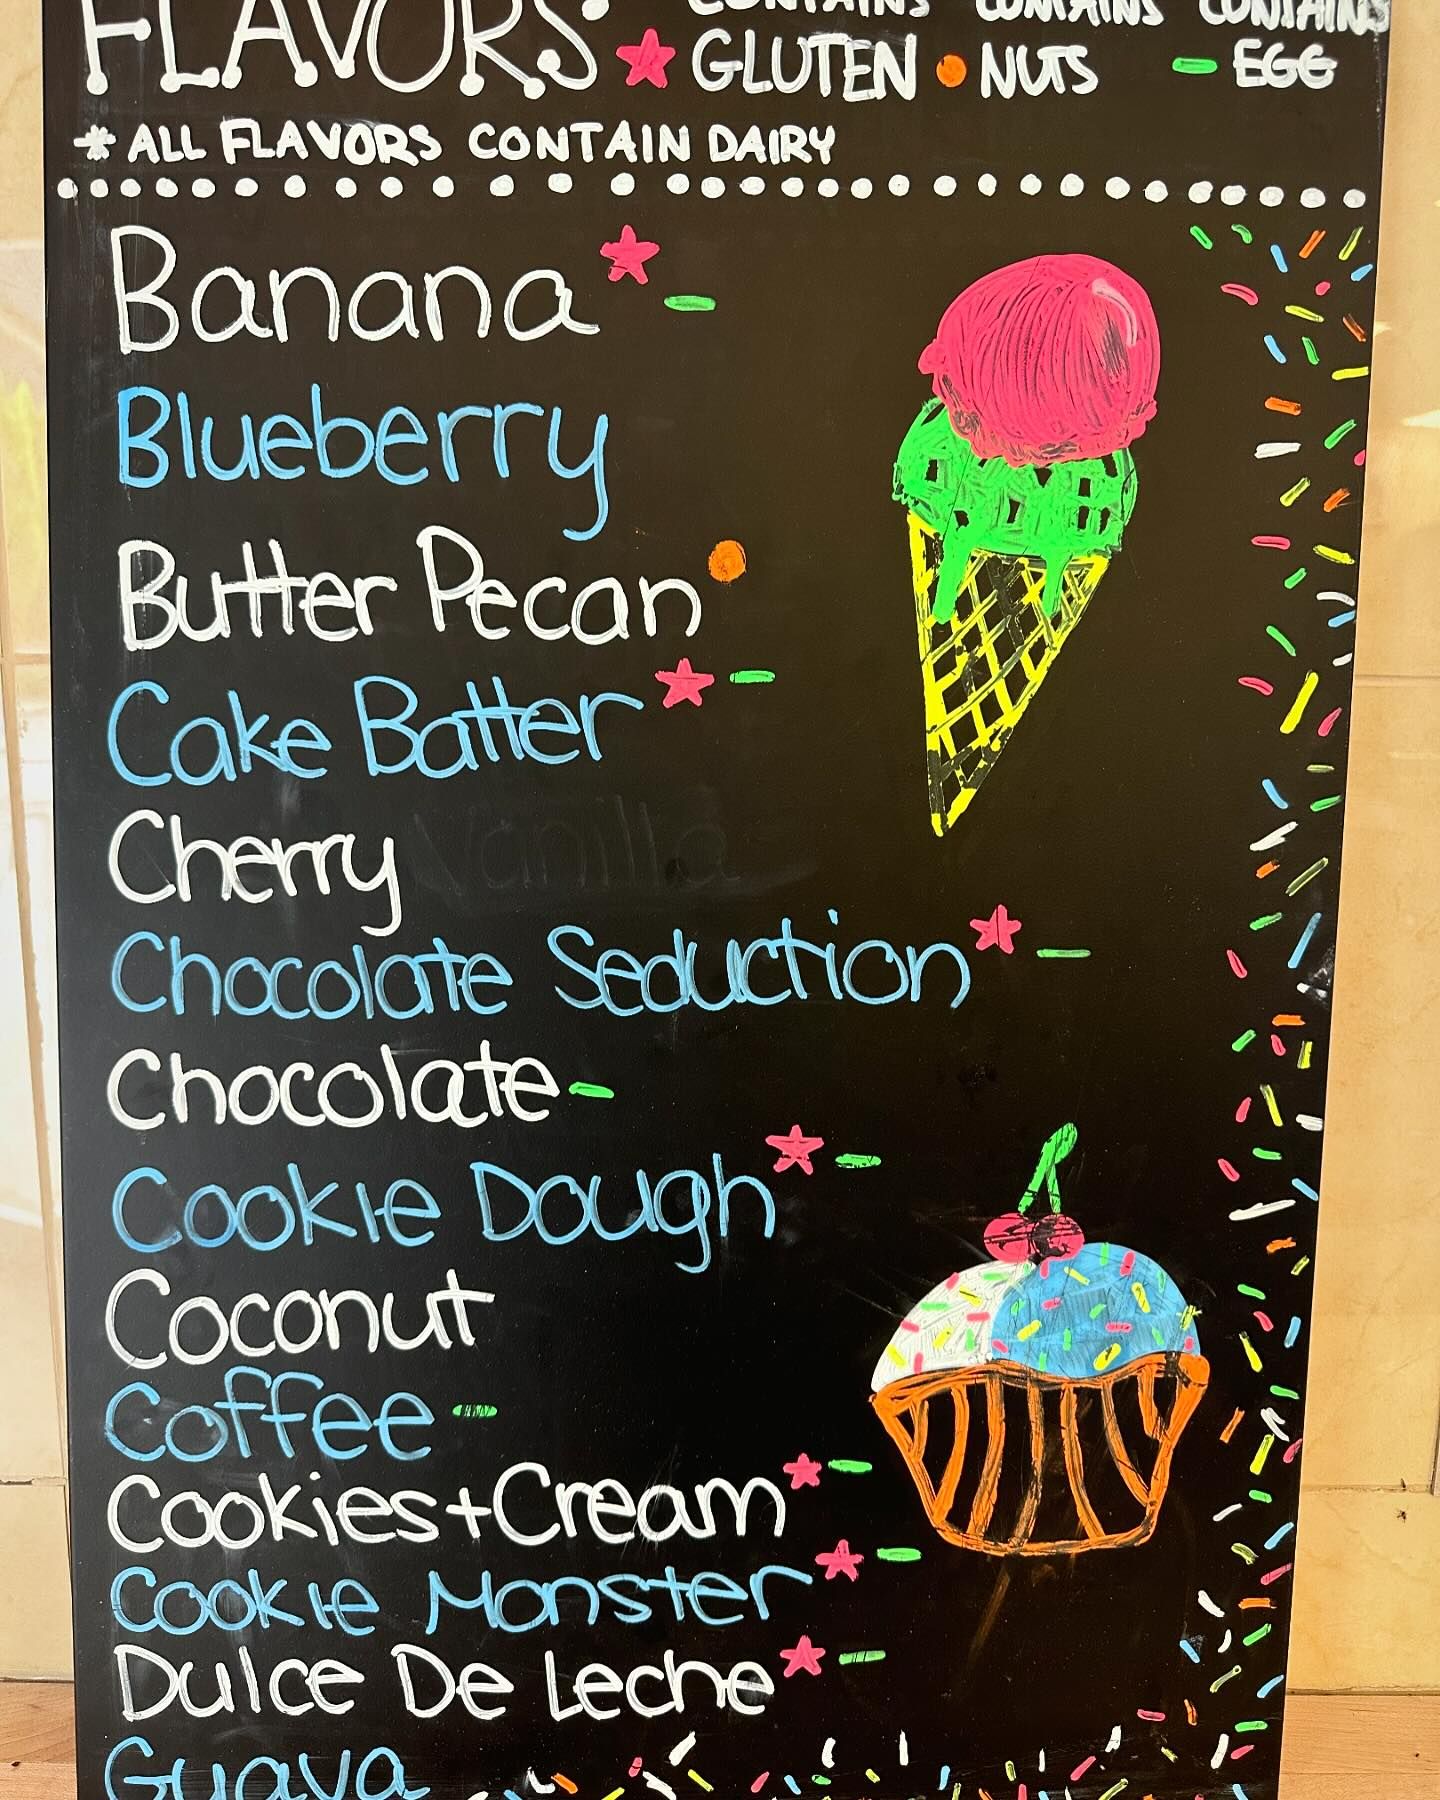 FLAVORS: CONTAINS CONTAINS CONTAINS
GLUTEN NUTS EGG
* ALL FLAVORS CONTAIN DAIRY
Banana
Blueberry
Butter Pecan
Cake Batter
Cherry
Vanilla
Chocolate Seduction
Chocolate
Cookie Dough
Coconut
Coffee
Cookies+Cream
Cookie Monster
Dulce De Leche
Guava